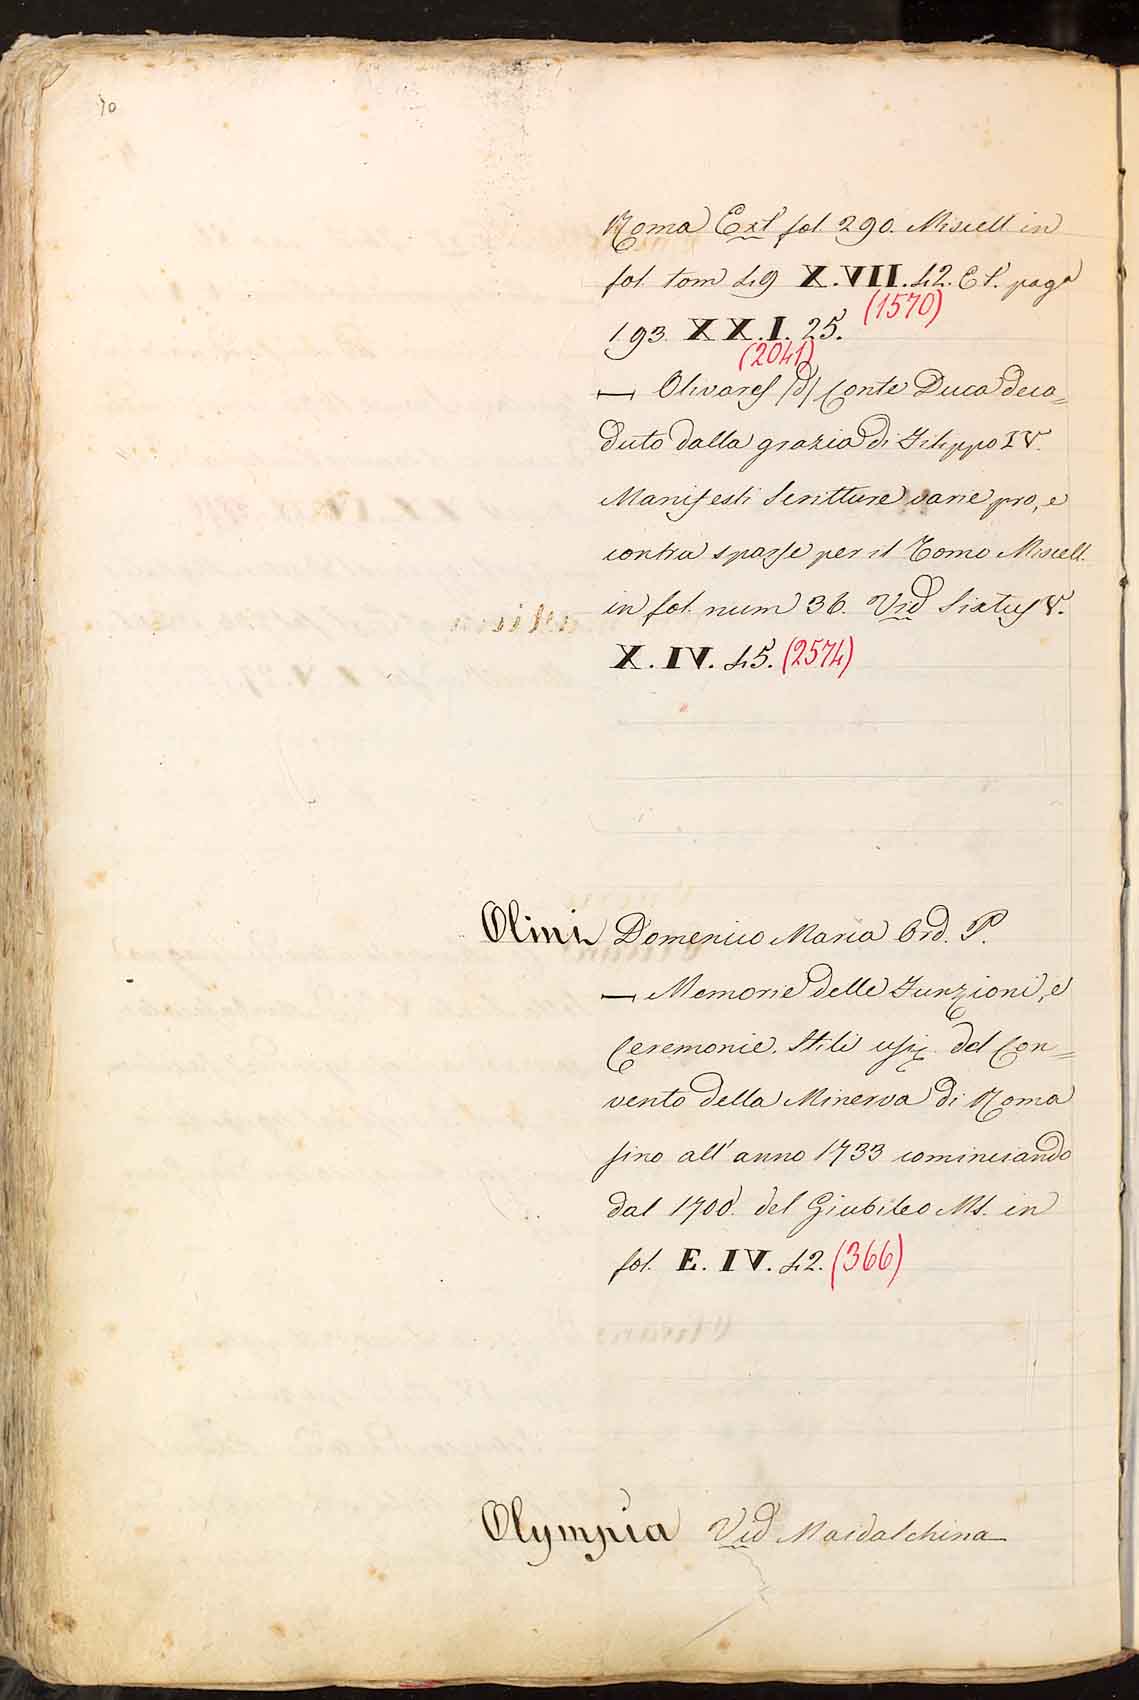 10
Roma Ext. fol 290. Miscell in
fol. tom 49 X.VII.42. Et. pag.ª
(1570)
193. XX.I.25.
(2041)
— Olivares /d/ Conte Duca deca=
duto dalla grazia di Filippo IV.
Manifesti Scritture varie pro, e
contra sparse per il Tomo Miscell.
in fol. num 36. Vid Sixtus V.
X.IV.45. (2574)
Olini Domenico Maria Ord. P.
— Memorie delle Funzioni, e
Ceremonie. Stili usi del Con=
vento della Minerva di Roma
sino all' anno 1733 cominciando
dal 1700. del Giubileo Ms. in
fol. E. IV. 42. (366)
Olympia Vid Maidalchina